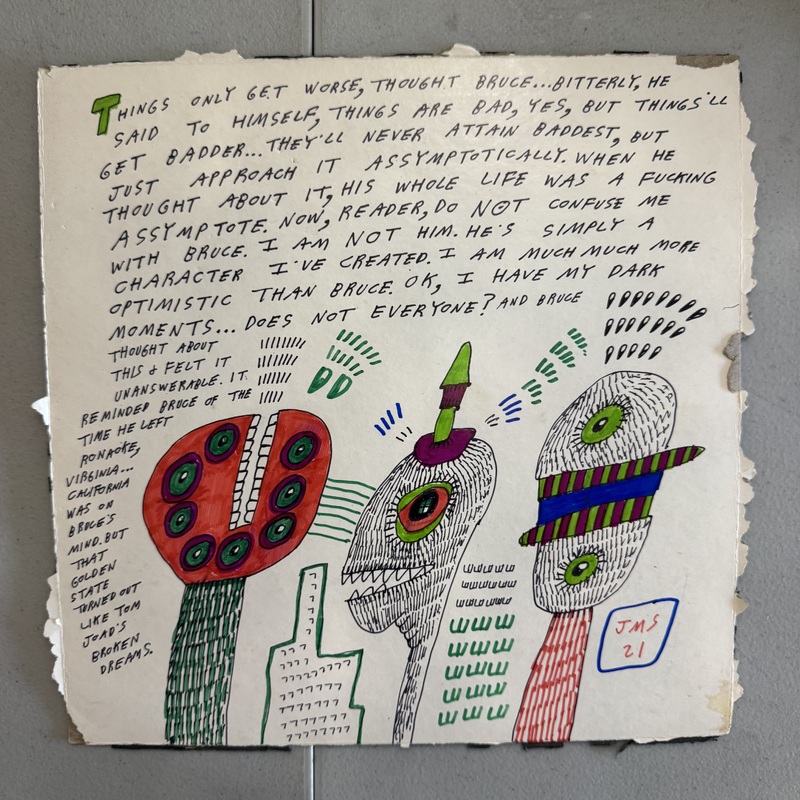 THINGS ONLY GET WORSE, THOUGHT BRUCE...BITTERLY, HE
SAID TO HIMSELF, THINGS ARE BAD, YES, BUT THINGS'LL
GET BADDER...THEY'LL NEVER ATTAIN BADDEST, BUT
JUST APPROACH IT ASSYMPTOTICALLY. WHEN HE
THOUGHT ABOUT IT, HIS WHOLE LIFE WAS A FUCKING
ASSYMPTOTE. NOW, READER, DO NOT CONFUSE ME
WITH BRUCE. I AM NOT HIM. HE'S SIMPLY A
CHARACTER I'VE CREATED. I AM MUCH MUCH MORE
OPTIMISTIC THAN BRUCE. OK, I HAVE MY DARK
MOMENTS... DOES NOT EVERYONE? AND BRUCE
THOUGHT ABOUT
THIS & FELT IT
UNANSWERABLE. IT
REMINDED BRUCE OF THE
TIME HE LEFT
RONAOKE,
VIRGINIA...
CALIFORNIA
WAS ON
BRUCE'S
MIND. BUT
THAT
GOLDEN
STATE
TURNED OUT
LIKE TOM
JOAD'S
BROKEN
DREAMS.
JMS
21